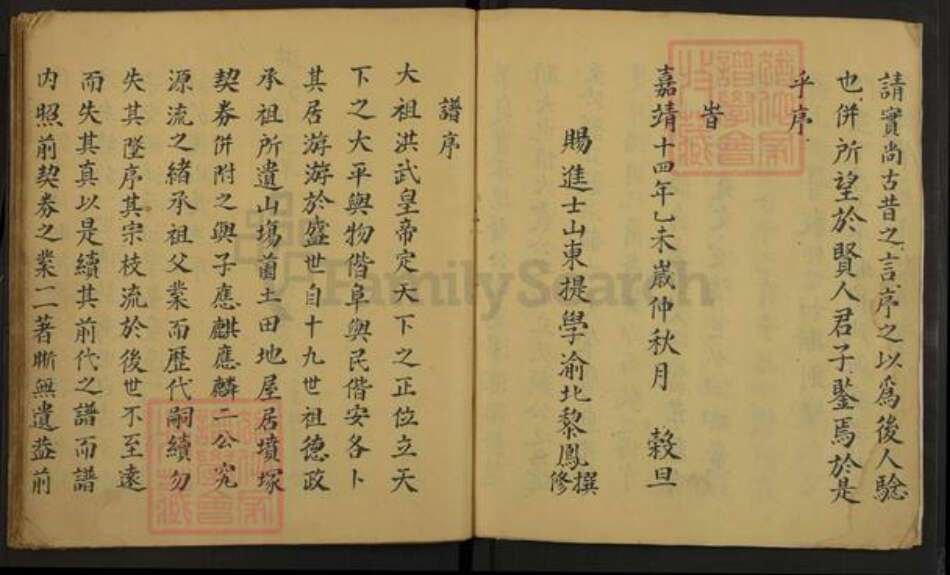 請實尚古昔之言序之以爲後人驗
也併所望於賢人君子鑒焉於是
乎序
旹
嘉靖十四年乙未嵗仲秋月 榖旦
賜進士山東提學渝北黎鳳撰修
譜序
大祖洪武皇帝定天下之正位立天
下之大平與物偕阜與民偕安各卜
其居游游於盛世自十九世祖德政
承祖所遺山塲薗土田地屋居墳塚
契券併附之與子應麒應麟二公究
源流之緒承祖父業而歷代嗣續勿
失其墜序其宗枝流於後世不至遠
而失其真以是續其前代之譜而譜
内照前契券之業二著晰無遺益前
FamilySearch